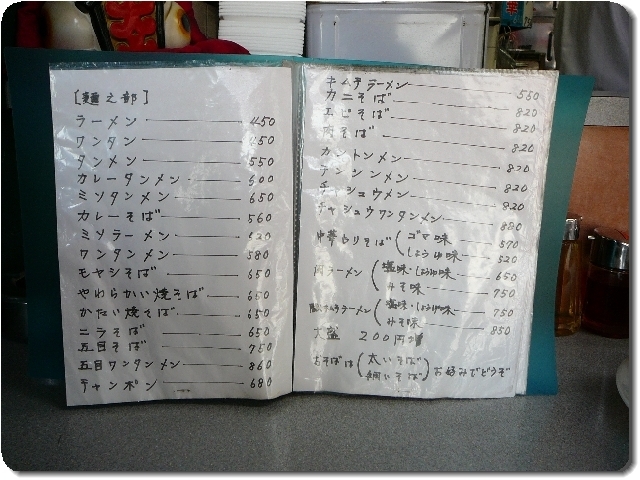 [麺之部]
ラーメン 450
ワンタン 450
タンメン 550
カレータンメン 600
ミソタンメン 650
カレーそば 560
ミソラーメン 620
ワンタンメン 580
モヤシそば 650
やわらかい焼そば 650
かたい焼そば 650
ニラそば 650
五目そば 750
五目ワンタンメン 860
チャンポン 680
キムチラーメン 550
カニそば 820
エビそば 820
肉そば 820
カントンメン 820
テンシンメン 820
チャシュウメン 820
チャシュウワンタンメン 880
中華もりそば ゴマ味 570
しょうゆ味 520
肉ラーメン 塩味・しょうゆ味 650
みそ味 750
豚キムチラーメン 塩味・しょうゆ味 750
みそ味 850
大盛 200円増
おそばは 太いそば
細いそば お好みでどうぞ